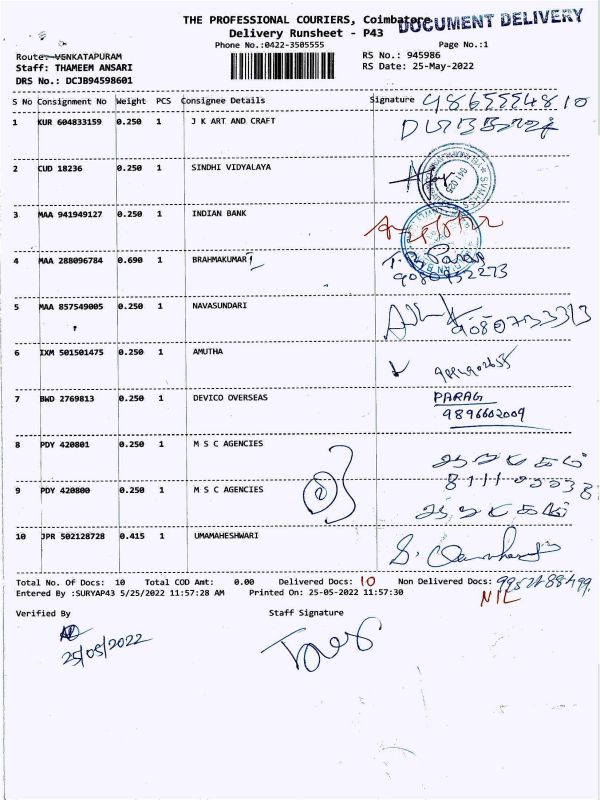 THE PROFESSIONAL COURIERS, Coimbatore
DOCUMENT DELIVERY
Delivery Runsheet - P43
Phone No.:0422-3505555
Page No.:1
Route: VENKATAPURAM
RS No.: 945986
Staff: THAMEEM ANSARI
RS Date: 25-May-2022
DRS No.: DCJB94598601
S No Consignment No Weight PCS Consignee Details Signature
1 KUR 604833159 0.250 1 J K ART AND CRAFT
2 CUD 18236 0.250 1 SINDHI VIDYALAYA
3 MAA 941949127 0.250 1 INDIAN BANK
4 MAA 288096784 0.690 1 BRAHMAKUMARI
5 MAA 857549005 0.250 1 NAVASUNDARI
6 IXM 501501475 0.250 1 AMUTHA
7 BWD 2769813 0.250 1 DEVICO OVERSEAS PARAG
9896602009
8 PDY 420801 0.250 1 M S C AGENCIES
9 PDY 420800 0.250 1 M S C AGENCIES
10 JPR 502128728 0.415 1 UMAMAHESHWARI
Total No. Of Docs: 10 Total COD Amt: 0.00 Delivered Docs: 10 Non Delivered Docs:
NIL
Entered By :SURYAP43 5/25/2022 11:57:28 AM Printed On: 25-05-2022 11:57:30
Verified By Staff Signature
25/05/2022